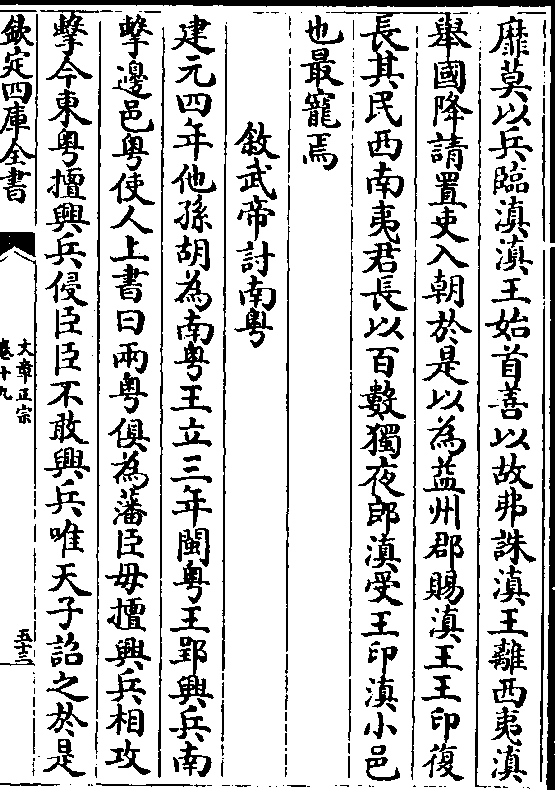 靡莫以兵臨滇滇王始首善以故弗誅滇王離西夷滇
舉國降請置吏入朝於是以為益州郡賜滇王王印復
長其民西南夷君長以百數獨夜郎滇受王印滇小邑
也最寵焉
敘武帝討南粤
建元四年他孫胡為南粤王立三年閩粤王郢興兵南
擊邊邑粤使人上書曰兩粤俱為藩臣毋擅興兵相攻
擊今東粤擅興兵侵臣臣不敢興兵唯天子詔之於是
欽定四庫全書
文章正宗
卷十九
五十三